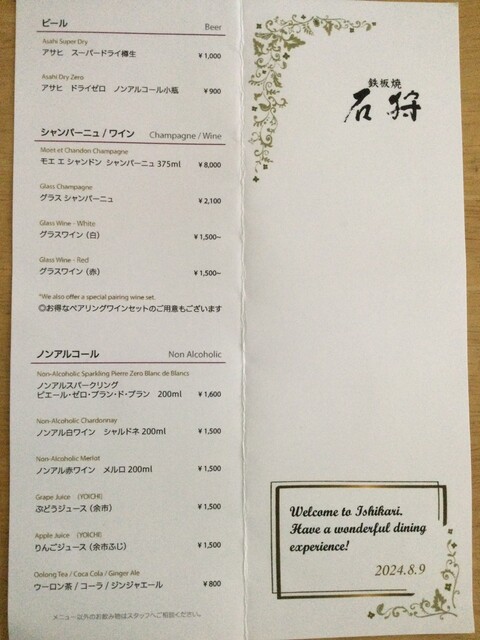 ビール Beer
Asahi Super Dry
アサヒ スーパードライ樽生 ¥1,000
Asahi Dry Zero
アサヒ ドライゼロ ノンアルコール小瓶 ¥900
シャンパーニュ / ワイン Champagne / Wine
Moet et Chandon Champagne
モエ エ シャンドン シャンパーニュ 375ml ¥8,000
Glass Champagne
グラス シャンパーニュ ¥2,100
Glass Wine - White
グラスワイン（白） ¥1,500~
Glass Wine - Red
グラスワイン（赤） ¥1,500~
*We also offer a special pairing wine set.
◎お得なペアリングワインセットのご用意もございます
ノンアルコール Non Alcoholic
Non-Alcoholic Sparkling Pierre Zero Blanc de Blancs
ノンアルスパークリング
ピエール・ゼロ・ブラン・ド・ブラン 200ml ¥1,600
Non-Alcoholic Chardonnay
ノンアル白ワイン シャルドネ 200ml ¥1,500
Non-Alcoholic Merlot
ノンアル赤ワイン メルロ 200ml ¥1,500
Grape Juice （YOICHI）
ぶどうジュース（余市） ¥1,500
Apple Juice （YOICHI）
りんごジュース（余市ふじ） ¥1,500
Oolong Tea / Coca Cola / Ginger Ale
ウーロン茶 / コーラ / ジンジャエール ¥800
メニュー以外のお飲み物はスタッフへご相談ください。
鉄板焼
石狩
Welcome to Ishikari.
Have a wonderful dining
experience!
2024.8.9